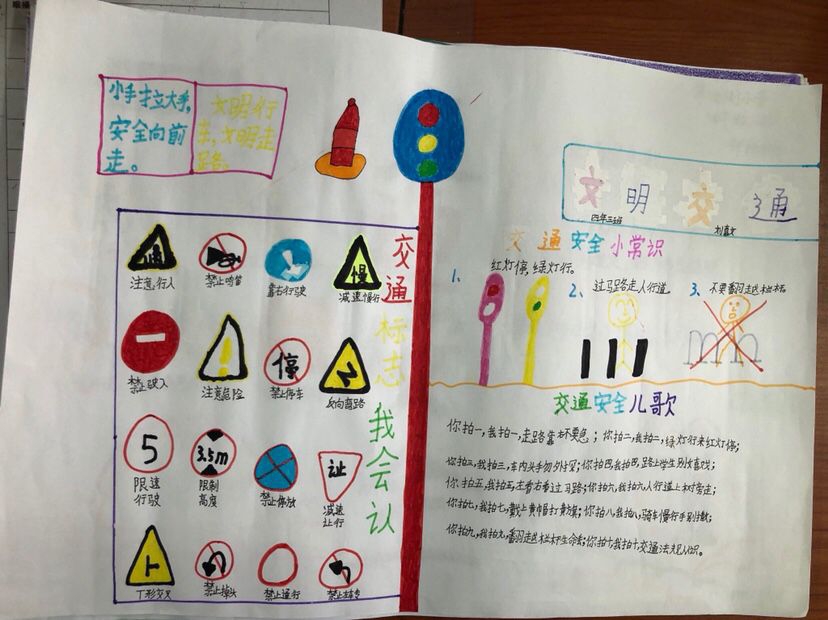 小手拉大手,
安全向前
走。
文明行
车,文明走
路。
文明交通
四年三班
交通安全小常识
1、
红灯停,绿灯行。
2、
过马路走人行道
3、
不要翻越栏杆。
交通标志我会认
注意行人
禁止鸣笛
靠右行驶
减速慢行
禁止驶入
注意危险
停
禁止停车
反向弯路
5
限速
行驶
3.5m
限制
高度
禁止停放
让
减速
让行
丁形交叉
禁止掉头
禁止通行
禁止左转
慢
交通安全儿歌
你拍一,我拍一,走路靠右不要急;你拍二,我拍二,绿灯行来红灯停;
你拍三,我拍三,车内头手勿外探;你拍四,我拍四,路上学生别嬉戏;
你拍五,我拍五,左看右看过马路;你拍六,我拍六,人行道上
你拍七,我拍七,戴上黄帽打黄旗;你拍八,我拍八,骑车慢行手别撒;
你拍九,我拍九,翻越栏杆生命丢;你拍十,我拍十,交通法规